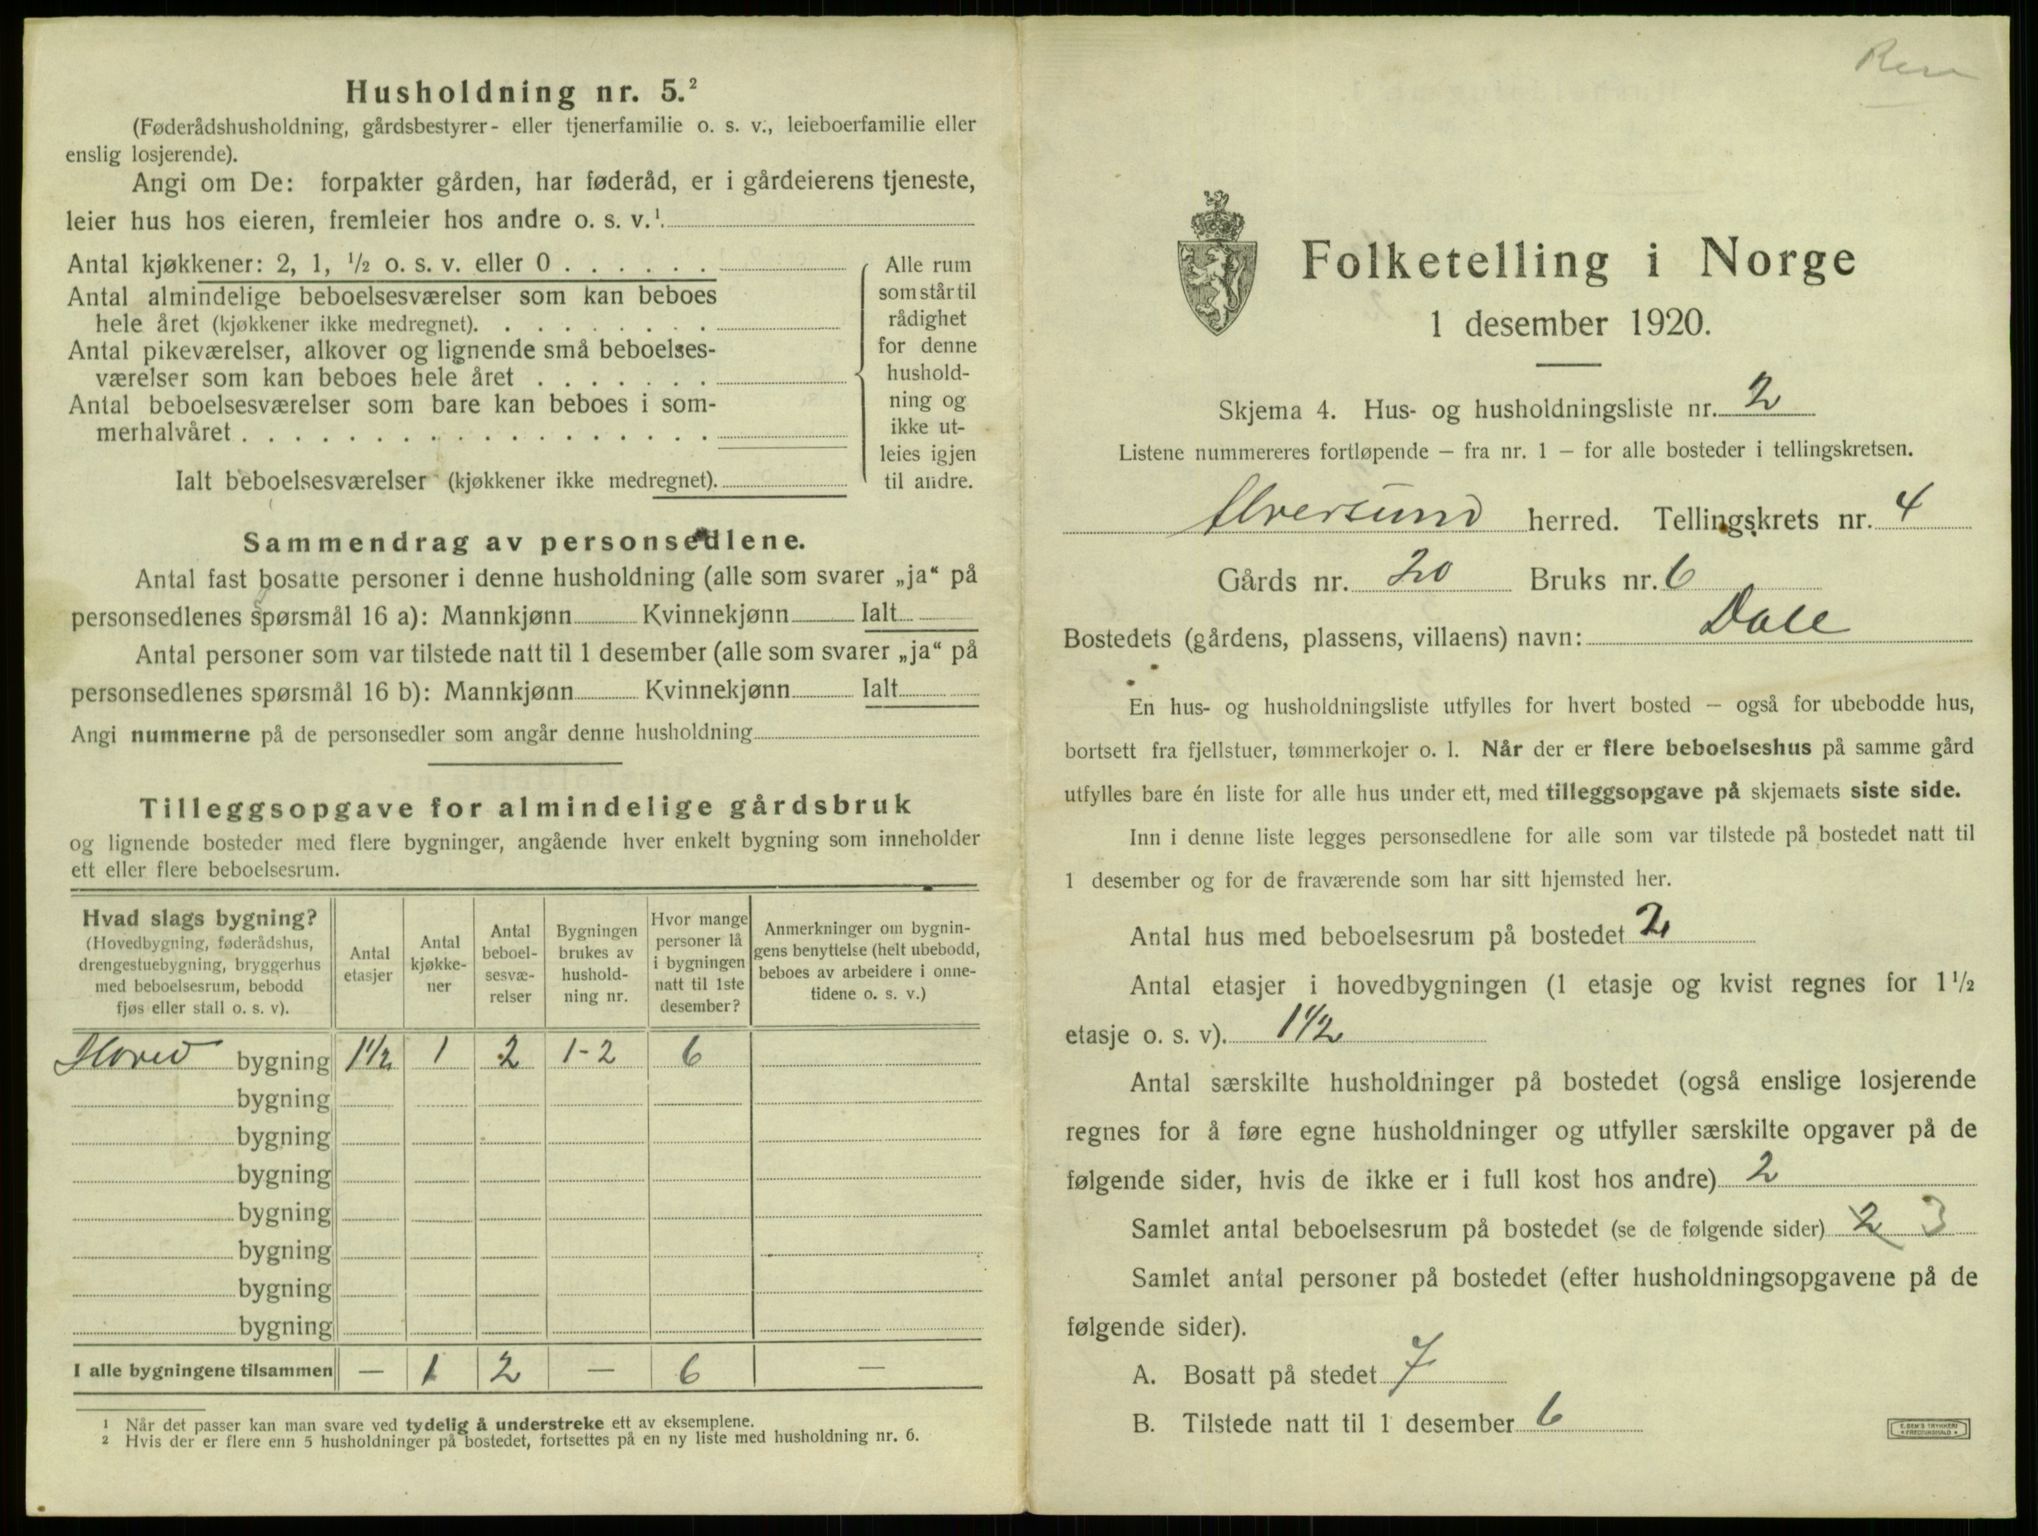 Husholdning nr. 5.²
(Føderådshusholdning, gårdsbestyrer- eller tjenerfamilie o. s. v., leieboerfamilie eller
enslig losjerende).
Angi om De: forpakter gården, har føderåd, er i gårdeierens tjeneste,
leier hus hos eieren, fremleier hos andre o. s. v.¹
Antal kjøkkener: 2, 1, ½ o. s. v. eller 0 . . . . . .
Antal almindelige beboelsesværelser som kan beboes
hele året (kjøkkener ikke medregnet). . . . . . . . .
Antal pikeværelser, alkover og lignende små beboelses-
værelser som kan beboes hele året . . . . . . .
Antal beboelsesværelser som bare kan beboes i som-
merhalvåret . . . . . . . . . . . . . . . . . .
Ialt beboelsesværelser (kjøkkener ikke medregnet).
Alle rum
som står til
rådighet
for denne
hushold-
ning og
ikke ut-
leies igjen
til andre.
Sammendrag av personsedlene.
Antal fast bosatte personer i denne husholdning (alle som svarer „ja“ på
personsedlenes spørsmål 16 a): Mannkjønn Kvinnekjønn Ialt
Antal personer som var tilstede natt til 1 desember (alle som svarer „ja“ på
personsedlenes spørsmål 16 b): Mannkjønn Kvinnekjønn Ialt
Angi nummerne på de personsedler som angår denne husholdning
Tilleggsopgave for almindelige gårdsbruk
og lignende bosteder med flere bygninger, angående hver enkelt bygning som inneholder
ett eller flere beboelsesrum.
Hvad slags bygning?
(Hovedbygning, føderådshus,
drengestuebygning, bryggerhus
med beboelsesrum, bebodd
fjøs eller stall o. s. v).
Antal
etasjer
Antal
kjøkke-
ner
Antal
beboel-
sesvæ-
relser
Bygningen
brukes av
hushold-
ning nr.
Hvor mange
personer lå
i bygningen
natt til 1ste
desember?
Anmerkninger om bygnin-
gens benyttelse (helt ubebodd,
beboes av arbeidere i onne-
tidene o. s. v.)
Hoved bygning 1½ 1 2 1-2 6
bygning
bygning
bygning
bygning
bygning
bygning
bygning
I alle bygningene tilsammen — 1 2 — 6 —
¹ Når det passer kan man svare ved tydelig å understreke ett av eksemplene.
² Hvis der er flere enn 5 husholdninger på bostedet, fortsettes på en ny liste med husholdning nr. 6.
Folketelling i Norge
1 desember 1920.
Skjema 4. Hus- og husholdningsliste nr. 2
Listene nummereres fortløpende – fra nr. 1 – for alle bosteder i tellingskretsen.
Alversund herred. Tellingskrets nr. 4
Gårds nr. 20 Bruks nr. 6
Bostedets (gårdens, plassens, villaens) navn: Dale
En hus- og husholdningsliste utfylles for hvert bosted – også for ubebodde hus,
bortsett fra fjellstuer, tømmerkojer o. l. Når der er flere beboelseshus på samme gård
utfylles bare én liste for alle hus under ett, med tilleggsopgave på skjemaets siste side.
Inn i denne liste legges personsedlene for alle som var tilstede på bostedet natt til
1 desember og for de fraværende som har sitt hjemsted her.
Antal hus med beboelsesrum på bostedet 2
Antal etasjer i hovedbygningen (1 etasje og kvist regnes for 1½
etasje o. s. v). 1½
Antal særskilte husholdninger på bostedet (også enslige losjerende
regnes for å føre egne husholdninger og utfyller særskilte opgaver på de
følgende sider, hvis de ikke er i full kost hos andre) 2
Samlet antal beboelsesrum på bostedet (se de følgende sider) 2 3
Samlet antal personer på bostedet (efter husholdningsopgavene på de
følgende sider).
A. Bosatt på stedet 7
B. Tilstede natt til 1 desember 6